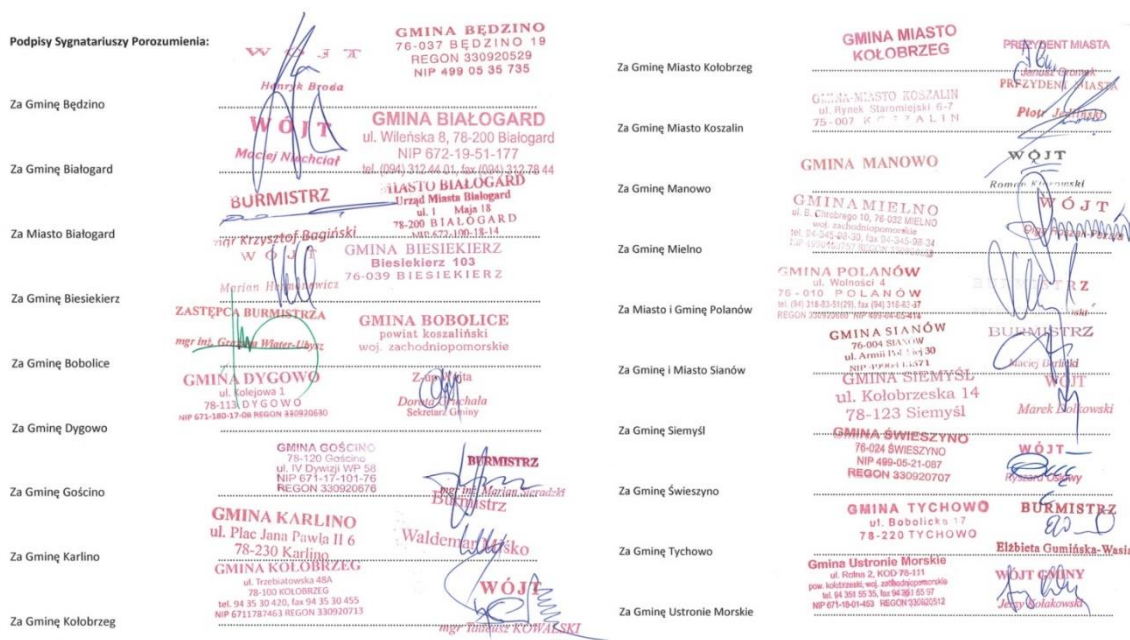 Podpisy Sygnatariuszy Porozumienia:
WÓJT
Henryk Broda
GMINA BĘDZINO
76-037 BĘDZINO 19
REGON 330920529
NIP 499 05 35 735
Za Gminę Będzino
WÓJT
Maciej Niechciał
GMINA BIAŁOGARD
ul. Wileńska 8, 78-200 Białogard
NIP 672-19-51-177
tel. (094) 312 44 01, fax (094) 312 78 44
Za Gminę Białogard
BURMISTRZ
Krzysztof Bagiński
MIASTO BIAŁOGARD
Urząd Miasta Białogard
ul. 1 Maja 18
78-200 BIAŁOGARD
NIP 672-100-18-14
Za Miasto Białogard
WÓJT
Marian
GMINA BIESIEKIERZ
Biesiekierz 103
76-039 BIESIEKIERZ
Za Gminę Biesiekierz
ZASTĘPCA BURMISTRZA
mgr inż.
GMINA BOBOLICE
powiat koszaliński
woj. zachodniopomorskie
Za Gminę Bobolice
GMINA DYGOWO
ul. Kolejowa 1
78-113 DYGOWO
NIP 671-180-17-08 REGON 330920630
Z-up. Wójta
Dorota
Sekretarz Gminy
Za Gminę Dygowo
GMINA GOŚCINO
78-120 Gościno
ul. IV Dywizji WP 58
NIP 671-17-101-76
REGON 330920676
BURMISTRZ
mgr inż. Marian Sieradzki
Za Gminę Gościno
GMINA KARLINO
ul. Plac Jana Pawła II 6
78-230 Karlino
Burmistrz
Waldemar Miśko
Za Gminę Karlino
GMINA KOŁOBRZEG
ul. Trzebiatowska 48A
78-100 KOŁOBRZEG
tel. 94 35 30 420, fax 94 35 30 455
NIP 6711787463 REGON 330920713
WÓJT
mgr Tadeusz KOWALSKI
Za Gminę Kołobrzeg
GMINA MIASTO
KOŁOBRZEG
PREZYDENT MIASTA
Janusz Gromek
Za Gminę Miasto Kołobrzeg
GMINA-MIASTO KOSZALIN
ul. Rynek Staromiejski 6-7
75-007 KOSZALIN
PREZYDENT MIASTA
Piotr Jedliński
Za Gminę Miasto Koszalin
GMINA MANOWO
WÓJT
Roman
Za Gminę Manowo
GMINA MIELNO
ul. B. Chrobrego 10, 76-032 MIELNO
woj. zachodniopomorskie
tel. 94-345-98-30, fax 94-345-98-34
WÓJT
Olga
Za Gminę Mielno
GMINA POLANÓW
ul. Wolności 4
76-010 POLANÓW
BURMISTRZ
Za Miasto i Gminę Polanów
GMINA SIANÓW
76-004 SIANÓW
ul. Armii Polskiej 30
BURMISTRZ
Maciej Berlicki
Za Gminę i Miasto Sianów
GMINA SIEMYŚL
ul. Kołobrzeska 14
78-123 Siemyśl
WÓJT
Marek Dołkowski
Za Gminę Siemyśl
GMINA ŚWIESZYNO
76-024 ŚWIESZYNO
NIP 499-05-21-087
REGON 330920707
WÓJT
Ryszard Osiowy
Za Gminę Świeszyno
GMINA TYCHOWO
ul. Bobolicka 17
78-220 TYCHOWO
BURMISTRZ
Elżbieta Gumińska-Wasia
Za Gminę Tychowo
Gmina Ustronie Morskie
ul. Rolna 2, KOD 78-111
pow. kołobrzeski, woj. zachodniopomorskie
tel. 94 351 55 35, fax 94 351 55 97
NIP 671-18-01-453 REGON 330920512
WÓJT GMINY
Jerzy Kołakowski
Za Gminę Ustronie Morskie